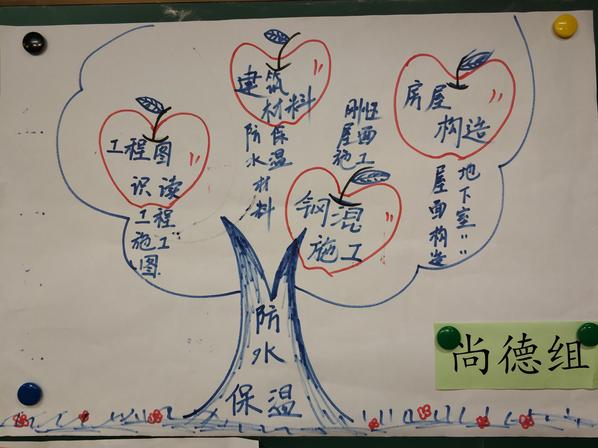 建筑
材料
防水材料
保温
工程图
识读
工程
施工
图
刚性
屋面
施工
钢混
施工
房屋
构造
地下室""
屋面构造
防
水
保温
尚德组